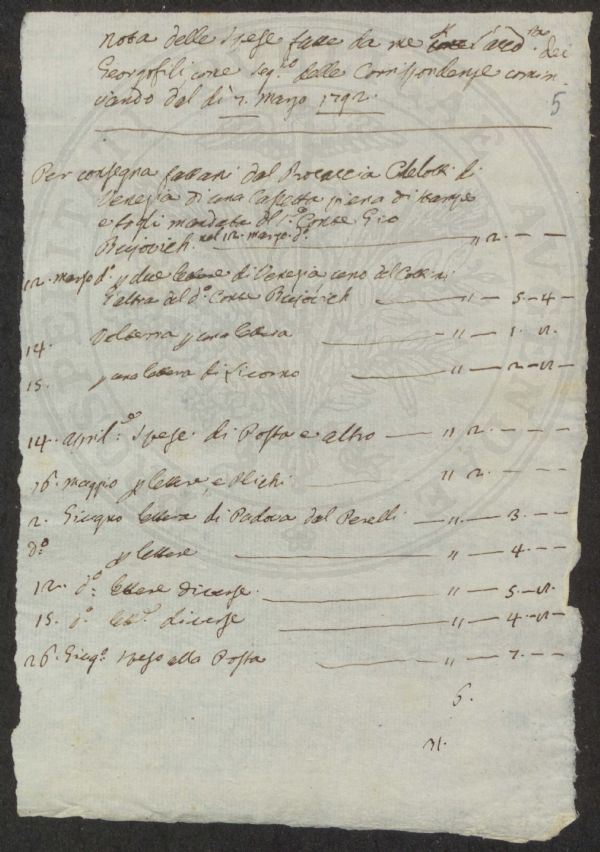 Nota delle Spese fatte da me p. l'Accd.ia dei
Georgofili come Seg.rio delle Corrispondenze comin-
ciando dal dì 7. Marzo 1792.
5
Per consegna fattami dal Procaccia Chelotti di
Venezia di una Cassetta piena di stampe
e fogli mandata dal S. Conte Gio
Bujovich nel 12. marzo d.o — " 2. — —
12. marzo d.o p due lettere di Venezia uno del
l'altra del d.o Conte Bujovich — " — 5 – 4 —
14. Volterra p una lettera — " — 1. —
15. p una lettera di Livorno — " — 2 —
14. april.e Spese di Posta e altro — " 2. — — —
16. maggio p lettere, e Plichi — " 2. — — —
2. Giugno lettera di Padova dal Perelli — " — 3. — —
d.o p lettere — " — 4. — —
12. d.o lettere diverse. — " — 5 —
15. d.o lett.e diverse — " — 4 —
26. Giug.o speso alla Posta — " — 7. — —
6.